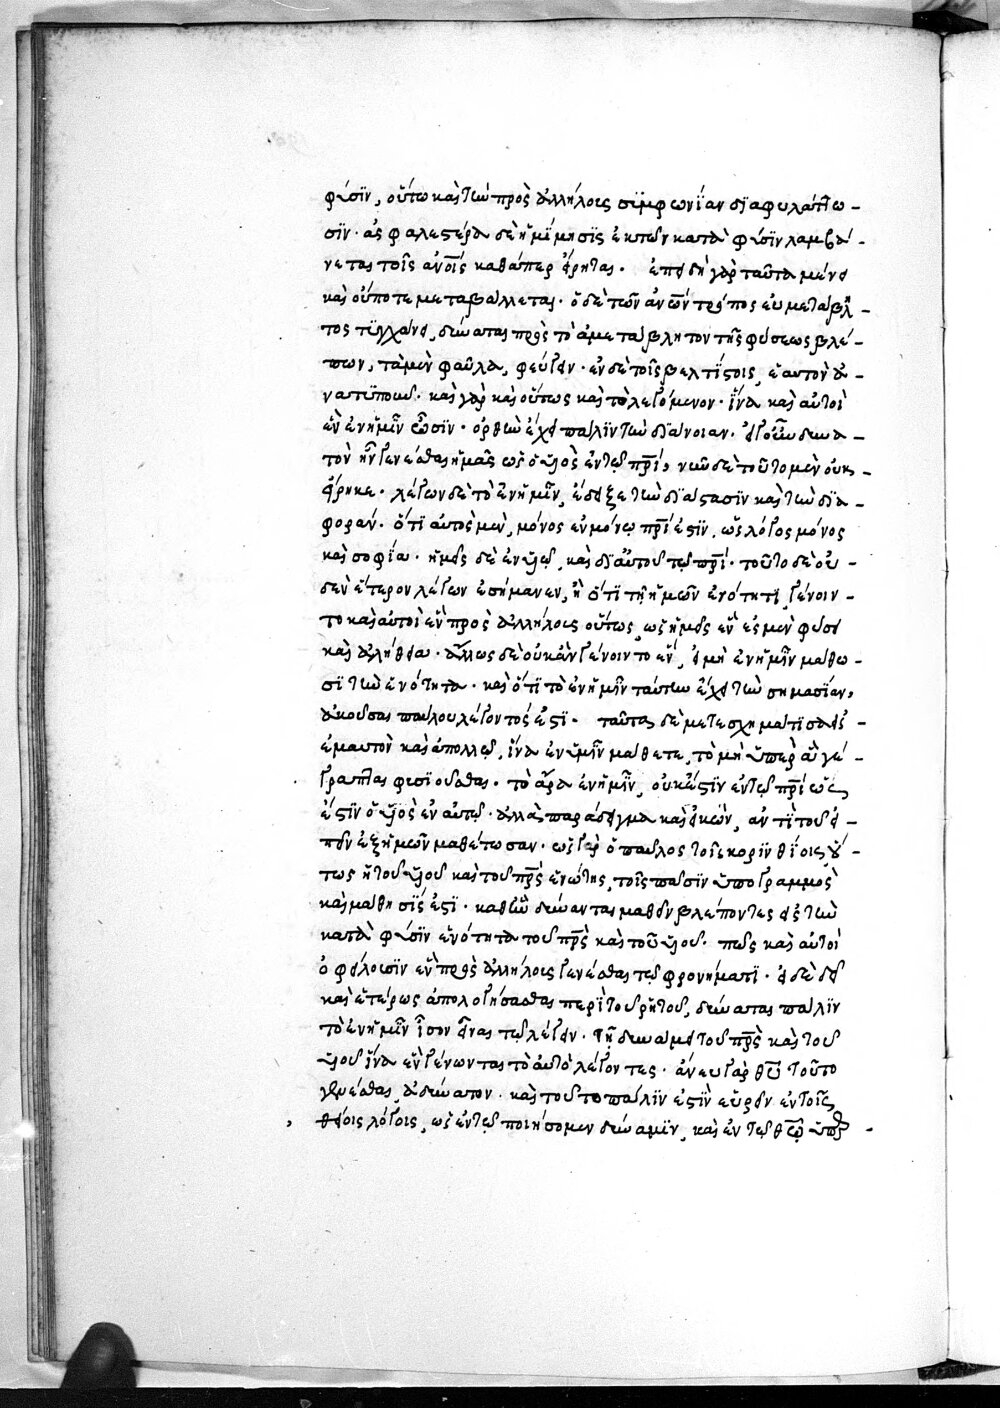 φύσϊν, οὕτω καὶ τὴν πρὸς ἀλλήλους συμφωνίαν διαφυλάττω-
σϊν· ἀσφαλεστέρα δὲ ἡ μίμησϊς ἐκ τῶν κατὰ φύσϊν λαμβά-
νεται τοῖς ἀνοῖς καθάπερ εἴρηται. ἐπειδὴ γὰρ ταῦτα μένει
καὶ οὔποτε μεταβάλλεται· ὁ δὲ τῶν ἀνων τρόπος εὐμετάβλη-
τος τϋγχάνει, δύναται πρὸς τὸ ἀμετάβλητον τῆς φύσεως βλέ-
πων, τὰ μὲν φαῦλα, φεύγειν· ἐν δὲ τοῖς βελτίστοις, ἑαυτὸν ἀ-
νατυποῦν. καὶ γὰρ καὶ οὕτως καὶ τὸ λεγόμενον· ἵνα καὶ αὐτοὶ
ἓν ἐν ἡμῖν ὦσϊν· ὀρθὴν ἔχει πάλϊν τὴν διάνοιαν. εἰ γοῦν δυνα-
τὸν ἦν γενέσθαι ἡμᾶς ὡς ὁ υἱὸς ἐν τῷ πρί, νῦν δὲ τοῦτο μὲν οὐκ
εἴρηκε. λέγων δὲ τὸ ἐν ἡμῖν, ἔδειξε τὴν διάστασϊν καὶ τὴν δια-
φοράν. ὅτι αὐτὸς μὲν, μόνος ἐν μόνῳ πρί ἐστϊν, ὡς λόγος μόνος
καὶ σοφία. ἡμεῖς δὲ ἐν υἱῷ, καὶ δι αὐτοῦ τῷ πρί. τοῦτο δὲ οὐ-
δὲν ἕτερον λέγων ἐσήμανεν, ἢ ὅτι τῇ ἡμῶν ἑνότητι, γένοιν-
το καὶ αὐτοὶ ἓν πρὸς ἀλλήλους οὕτως, ὡς ἡμεῖς ἕν ἐσμεν φύσει
καὶ ἀληθείᾳ. ἄλλως δὲ οὐκ ἂν γένοιντο ἕν, εἰ μὴ ἐν ἡμῖν μάθω-
σι τὴν ἑνότητα. καὶ ὅτι τὸ ἐν ἡμῖν ταύτην ἔχει τὴν σημασίαν,
ἀκοῦσαι παύλου λέγοντός ἐστι. ταῦτα δὲ μετεσχημάτισα εἰς
ἐμαυτὸν καὶ ἀπολλῶ, ἵνα ἐν ὑμῖν μάθετε, τὸ μὴ ὑπὲρ ἃ γέ-
γραπται φυσιοῦσθαι. τὸ ἄρα ἐν ἡμῖν, οὐκ ἔστϊν ἐν τῷ πρί ὡς
ἐστϊν ὁ υἱὸς ἐν αὐτῷ. ἀλλὰ παράδειγμα καὶ εἰκών, ἀντὶ τοῦ εἰ-
πεῖν ἐξ ἡμῶν μαθέτωσαν. ὡς γὰρ ὁ παῦλος τοῖς κορινθίοις, οὕ-
τως ἡ τοῦ υἱοῦ καὶ τοῦ πρς ἑνότης, τοῖς πᾶσϊν ὑπογραμμὸς
καὶ μάθησίς ἐστι. καθ ἣν δύνανται μαθεῖν βλέποντες εἰς τὴν
κατὰ φύσϊν ἑνότητα τοῦ πρς καὶ τοῦ υἱοῦ. πῶς καὶ αὐτοὶ
ὀφείλουσϊν ἓν πρὸς ἀλλήλους γενέσθαι τῷ φρονήματι. εἰ δὲ δεῖ
καὶ ἑτέρως ἀπολογήσασθαι περὶ τοῦ ῥητοῦ, δύναται πάλϊν
τὸ ἐν ἡμῖν ἴσον εἶναι τῷ λέγειν. τῇ δυνάμει τοῦ πρς καὶ τοῦ
υἱοῦ ἵνα ἓν γένωνται τὸ αὐτὸ λέγοντες. ἄνευ γὰρ θυ τοῦτο
γενέσθαι, ἀδύνατον. καὶ τοῦτο πάλϊν ἐστϊν εὑρεῖν ἐν τοῖς
θείοις λόγοις, ὡς ἐν τῷ ποιήσομεν δύναμϊν, καὶ ἐν τῷ θῷ ὑπερ-